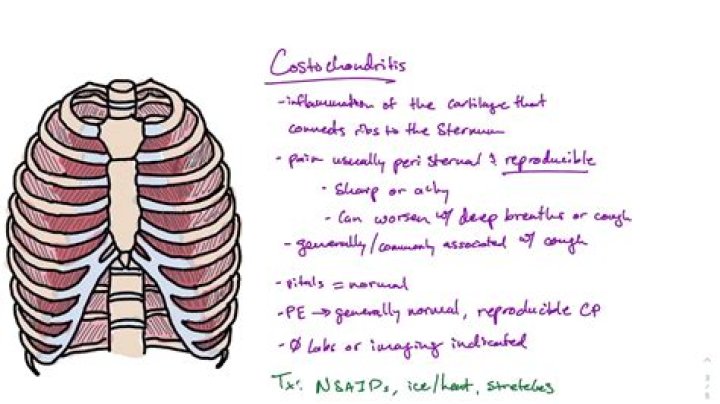 Costochondritis
- inflammation of the cartilage that
connects ribs to the Sternum
- pain usually peri sternal & reproducible
- Sharp or achy
- Can worsen w/ deep breaths or cough
- generally/commonly associated w/ cough
- vitals = normal
- PE → generally normal, reproducible CP
- Ø Labs or imaging indicated
Tx: NSAIDs, ice/heat, stretches